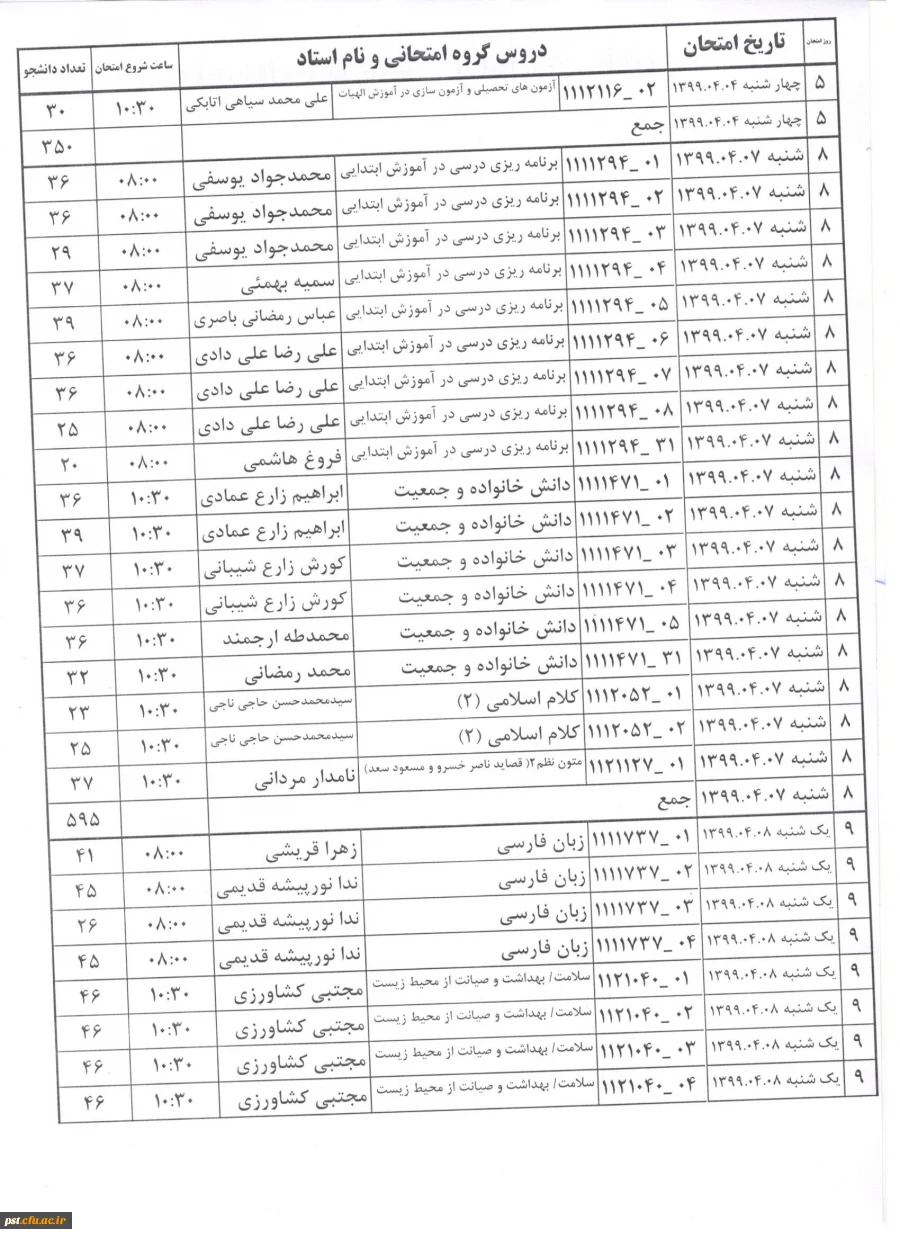 روز امتحان تاریخ امتحان دروس گروه امتحانی و نام استاد ساعت شروع امتحان تعداد دانشجو
۵ چهار شنبه ۱۳۹۹.۰۴.۰۴ ۱۱۱۲۱۱۶_۰۲ آزمون های تحصیلی و آزمون سازی در آموزش الهیات علی محمد سیاهی اتابکی ۱۰:۳۰ ۳۰
۵ چهار شنبه ۱۳۹۹.۰۴.۰۴ جمع ۳۵۰
۸ شنبه ۱۳۹۹.۰۴.۰۷ ۱۱۱۱۲۹۴_۰۱ برنامه ریزی درسی در آموزش ابتدایی محمدجواد یوسفی ۰۸:۰۰ ۳۶
۸ شنبه ۱۳۹۹.۰۴.۰۷ ۱۱۱۱۲۹۴_۰۲ برنامه ریزی درسی در آموزش ابتدایی محمدجواد یوسفی ۰۸:۰۰ ۳۶
۸ شنبه ۱۳۹۹.۰۴.۰۷ ۱۱۱۱۲۹۴_۰۳ برنامه ریزی درسی در آموزش ابتدایی محمدجواد یوسفی ۰۸:۰۰ ۲۹
۸ شنبه ۱۳۹۹.۰۴.۰۷ ۱۱۱۱۲۹۴_۰۴ برنامه ریزی درسی در آموزش ابتدایی سمیه بهمئی ۰۸:۰۰ ۳۷
۸ شنبه ۱۳۹۹.۰۴.۰۷ ۱۱۱۱۲۹۴_۰۵ برنامه ریزی درسی در آموزش ابتدایی عباس رمضانی باصری ۰۸:۰۰ ۳۹
۸ شنبه ۱۳۹۹.۰۴.۰۷ ۱۱۱۱۲۹۴_۰۶ برنامه ریزی درسی در آموزش ابتدایی علی رضا علی دادی ۰۸:۰۰ ۳۶
۸ شنبه ۱۳۹۹.۰۴.۰۷ ۱۱۱۱۲۹۴_۰۷ برنامه ریزی درسی در آموزش ابتدایی علی رضا علی دادی ۰۸:۰۰ ۳۶
۸ شنبه ۱۳۹۹.۰۴.۰۷ ۱۱۱۱۲۹۴_۰۸ برنامه ریزی درسی در آموزش ابتدایی علی رضا علی دادی ۰۸:۰۰ ۲۵
۸ شنبه ۱۳۹۹.۰۴.۰۷ ۱۱۱۱۲۹۴_۳۱ برنامه ریزی درسی در آموزش ابتدایی فروغ هاشمی ۰۸:۰۰ ۲۰
۸ شنبه ۱۳۹۹.۰۴.۰۷ ۱۱۱۱۴۷۱_۰۱ دانش خانواده و جمعیت ابراهیم زارع عمادی ۱۰:۳۰ ۳۶
۸ شنبه ۱۳۹۹.۰۴.۰۷ ۱۱۱۱۴۷۱_۰۲ دانش خانواده و جمعیت ابراهیم زارع عمادی ۱۰:۳۰ ۳۹
۸ شنبه ۱۳۹۹.۰۴.۰۷ ۱۱۱۱۴۷۱_۰۳ دانش خانواده و جمعیت کورش زارع شیبانی ۱۰:۳۰ ۳۷
۸ شنبه ۱۳۹۹.۰۴.۰۷ ۱۱۱۱۴۷۱_۰۴ دانش خانواده و جمعیت کورش زارع شیبانی ۱۰:۳۰ ۳۶
۸ شنبه ۱۳۹۹.۰۴.۰۷ ۱۱۱۱۴۷۱_۰۵ دانش خانواده و جمعیت محمدطه ارجمند ۱۰:۳۰ ۳۶
۸ شنبه ۱۳۹۹.۰۴.۰۷ ۱۱۱۱۴۷۱_۳۱ دانش خانواده و جمعیت محمد رمضانی ۱۰:۳۰ ۳۲
۸ شنبه ۱۳۹۹.۰۴.۰۷ ۱۱۱۲۰۵۲_۰۱ کلام اسلامی (۲) سیدمحمدحسن حاجی ناجی ۱۰:۳۰ ۲۳
۸ شنبه ۱۳۹۹.۰۴.۰۷ ۱۱۱۲۰۵۲_۰۲ کلام اسلامی (۲) سیدمحمدحسن حاجی ناجی ۱۰:۳۰ ۲۵
۸ شنبه ۱۳۹۹.۰۴.۰۷ ۱۱۲۱۱۲۷_۰۱ متون نظم۲( قصاید ناصر خسرو و مسعود سعد) نامدار مردانی ۱۰:۳۰ ۳۷
۸ شنبه ۱۳۹۹.۰۴.۰۷ جمع ۵۹۵
۹ یک شنبه ۱۳۹۹.۰۴.۰۸ ۱۱۱۱۷۳۷_۰۱ زبان فارسی زهرا قریشی ۰۸:۰۰ ۴۱
۹ یک شنبه ۱۳۹۹.۰۴.۰۸ ۱۱۱۱۷۳۷_۰۲ زبان فارسی ندا نورپیشه قدیمی ۰۸:۰۰ ۴۵
۹ یک شنبه ۱۳۹۹.۰۴.۰۸ ۱۱۱۱۷۳۷_۰۳ زبان فارسی ندا نورپیشه قدیمی ۰۸:۰۰ ۲۶
۹ یک شنبه ۱۳۹۹.۰۴.۰۸ ۱۱۱۱۷۳۷_۰۴ زبان فارسی ندا نورپیشه قدیمی ۰۸:۰۰ ۴۵
۹ یک شنبه ۱۳۹۹.۰۴.۰۸ ۱۱۲۱۰۴۰_۰۱ سلامت/ بهداشت و صیانت از محیط زیست مجتبی کشاورزی ۱۰:۳۰ ۴۶
۹ یک شنبه ۱۳۹۹.۰۴.۰۸ ۱۱۲۱۰۴۰_۰۲ سلامت/ بهداشت و صیانت از محیط زیست مجتبی کشاورزی ۱۰:۳۰ ۴۶
۹ یک شنبه ۱۳۹۹.۰۴.۰۸ ۱۱۲۱۰۴۰_۰۳ سلامت/ بهداشت و صیانت از محیط زیست مجتبی کشاورزی ۱۰:۳۰ ۴۶
۹ یک شنبه ۱۳۹۹.۰۴.۰۸ ۱۱۲۱۰۴۰_۰۴ سلامت/ بهداشت و صیانت از محیط زیست مجتبی کشاورزی ۱۰:۳۰ ۴۶
pst.cfu.ac.ir